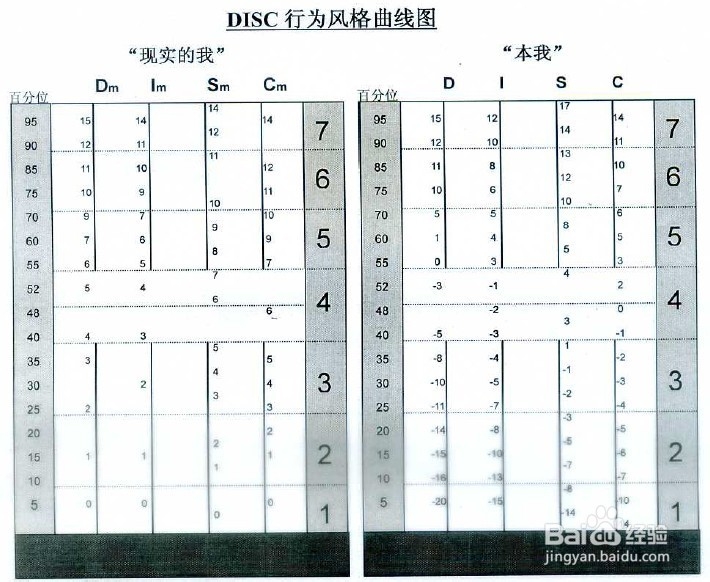 DISC 行为风格曲线图
“现实的我” “本我”
百分位 Dm Im Sm Cm 百分位 D I S C
14 17
95 15 14 14 95 15 12 14
12 14 7 7
90 12 11 90 12 10 11
11 13
85 11 10 12 85 11 8 10
12 6 6
75 10 9 11 75 10 6 7
10 10
70 9 7 10 70 5 5 6
9 8 5 5
60 7 6 9 60 1 4 5
8 5
55 6 5 7 55 0 3 3
7 4
52 5 4 52 -3 -1 2
6 4 4
48 6 48 -2 0
3
40 4 3 40 -5 -3 -1
5 1
35 3 5 35 -8 -4 -2
4 -1 3 3
30 2 4 30 -10 -5 -3
3 -2
25 2 3 25 -11 -7 -4
-3
20 2 20 -14 -8 -5
2 -5 2 2
15 1 1 1 15 -15 -10 -6
1 -7
10 10 -16 -13 -7
-8
5 0 0 0 5 -20 -15 -10
0 1 -14 1
Baidu 经验
jingyan.baidu.com